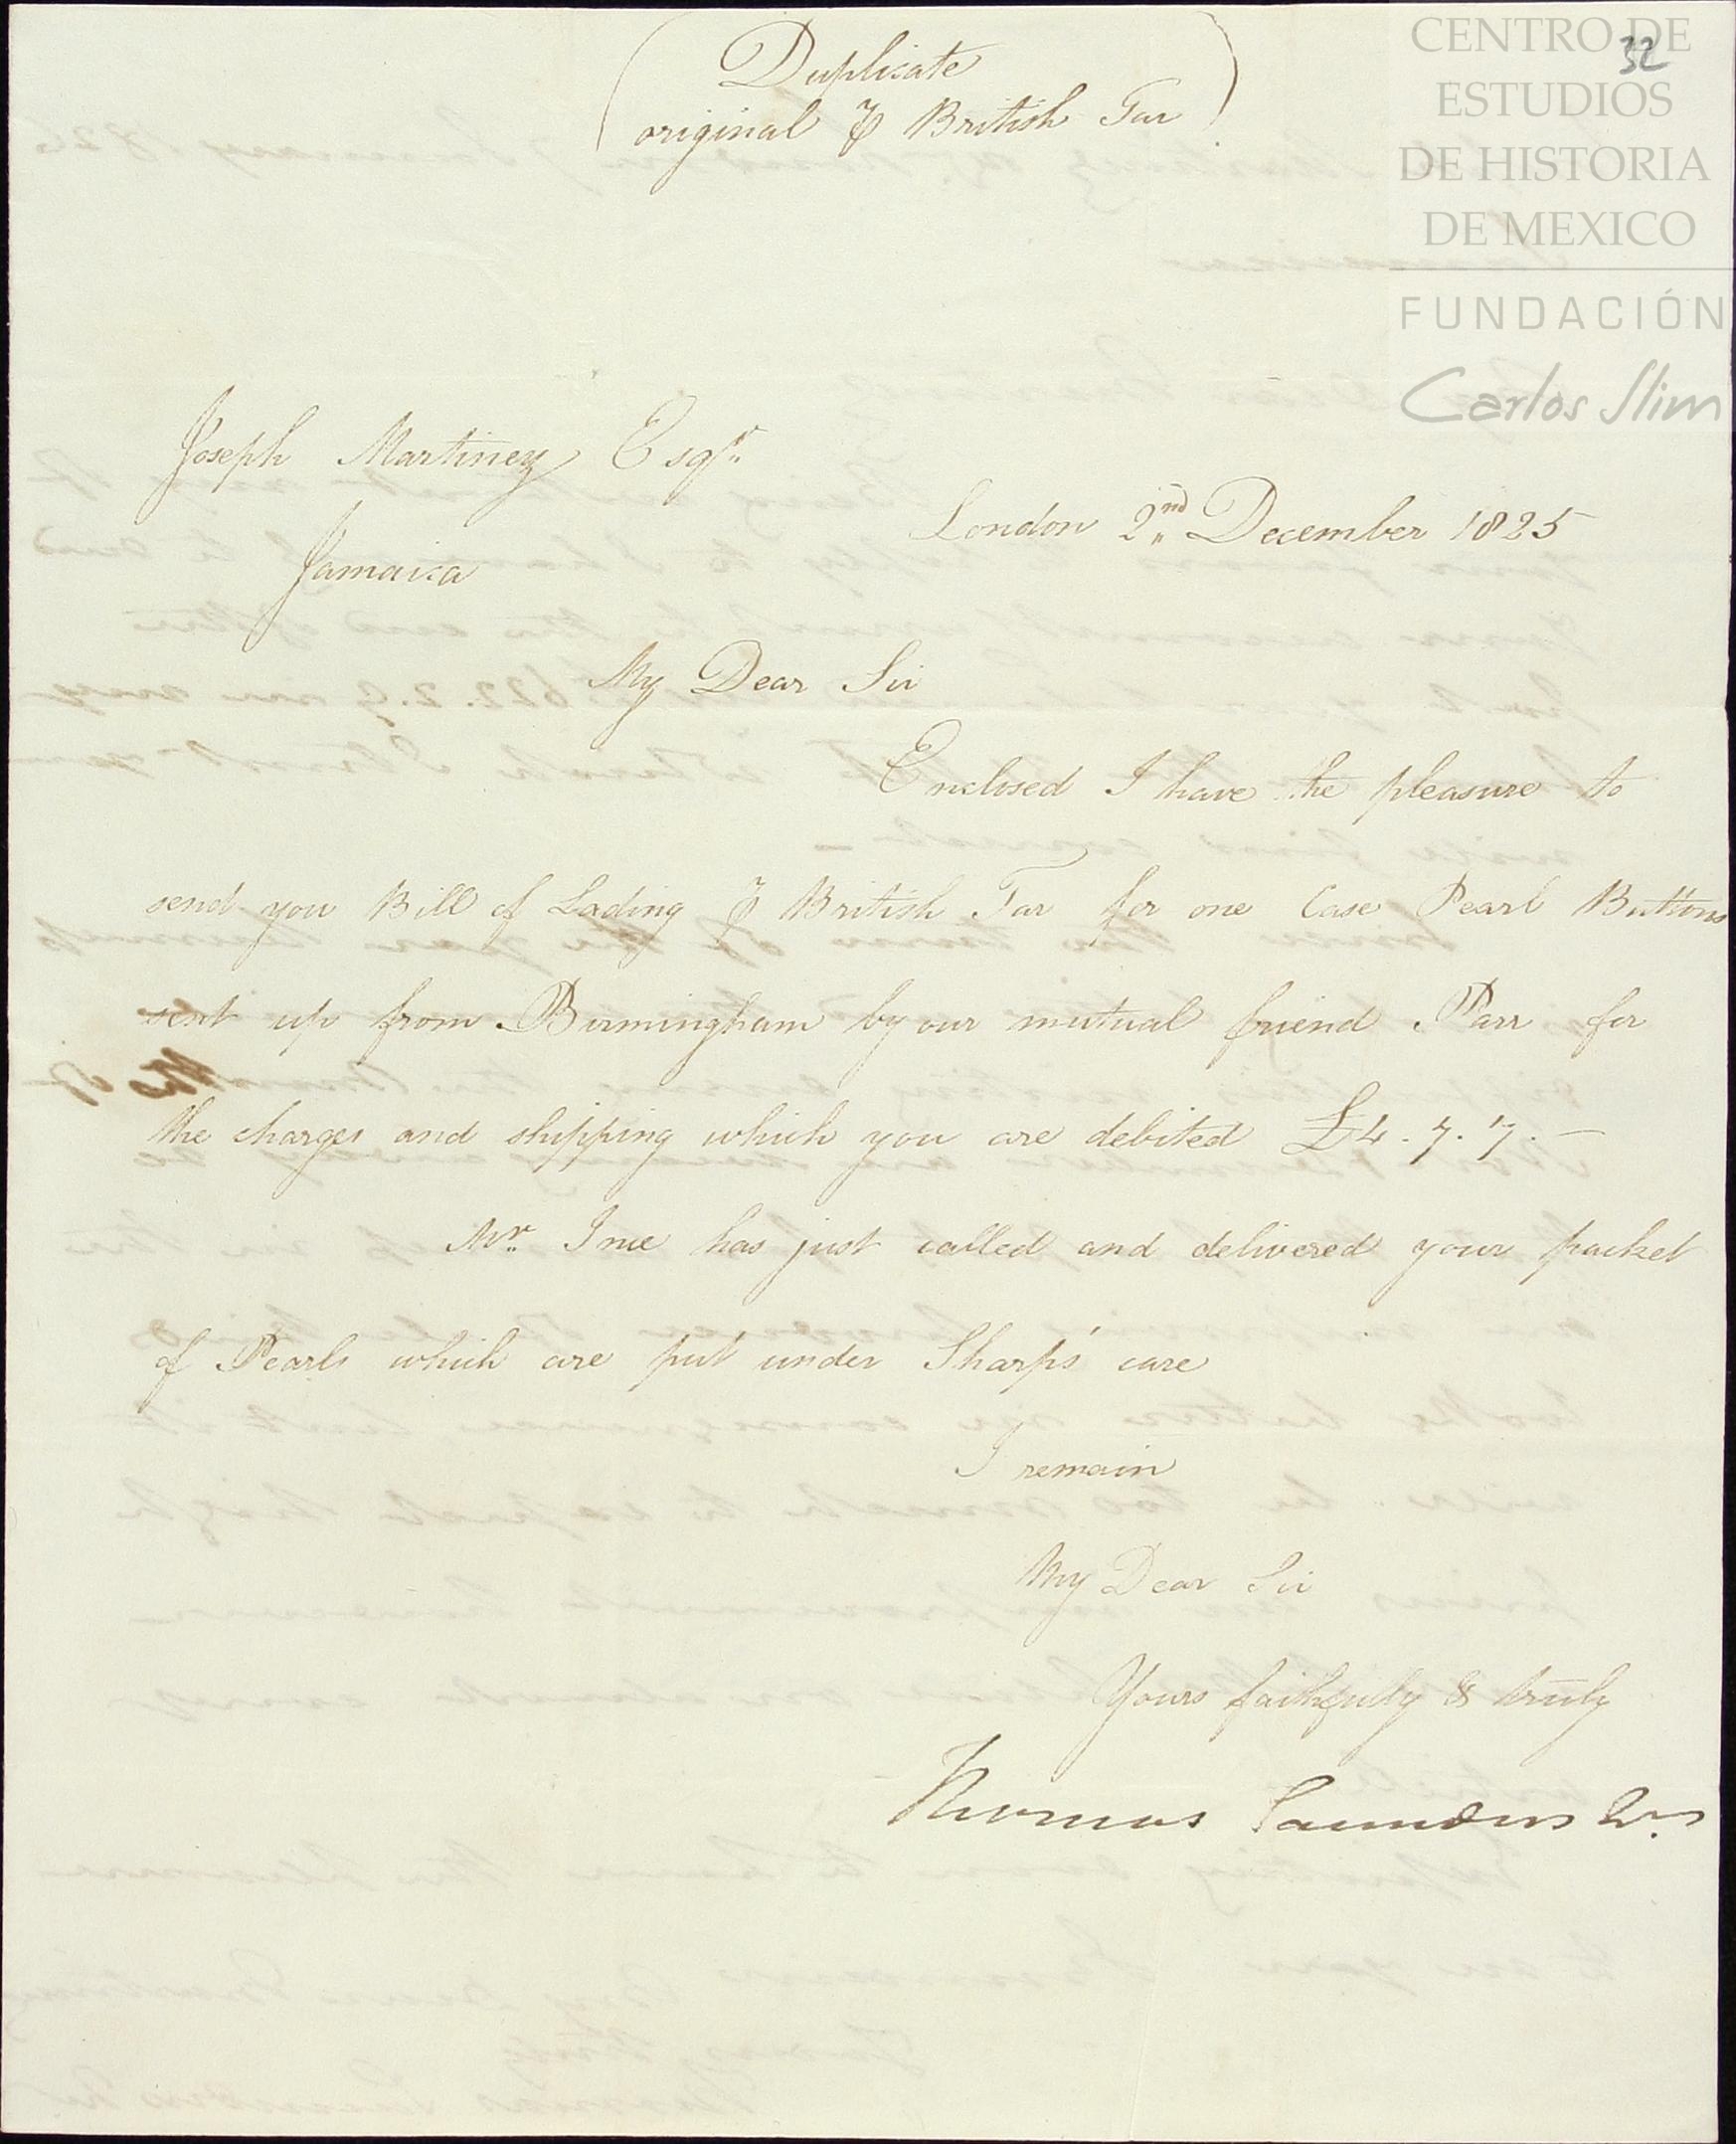 CENTRO DE
ESTUDIOS
DE HISTORIA
DE MEXICO
FUNDACIÓN
Carlos Slim
32
(Duplicate
original ⅌ British Tar)
Joseph Martinez Esqr.
London 2nd December 1825
Jamaica
My Dear Sir
Enclosed I have the pleasure to
send you Bill of Lading ⅌ British Tar for one Case Pearl Buttons
sent up from Birmingham by our mutual friend Parr for
the charges and shipping which you are debited £4.7.7.—
Mr. has just called and delivered your packet
of Pearls which are put under Sharps' care
I remain
My Dear Sir
Yours faithfully & truly
Thomas Saunders